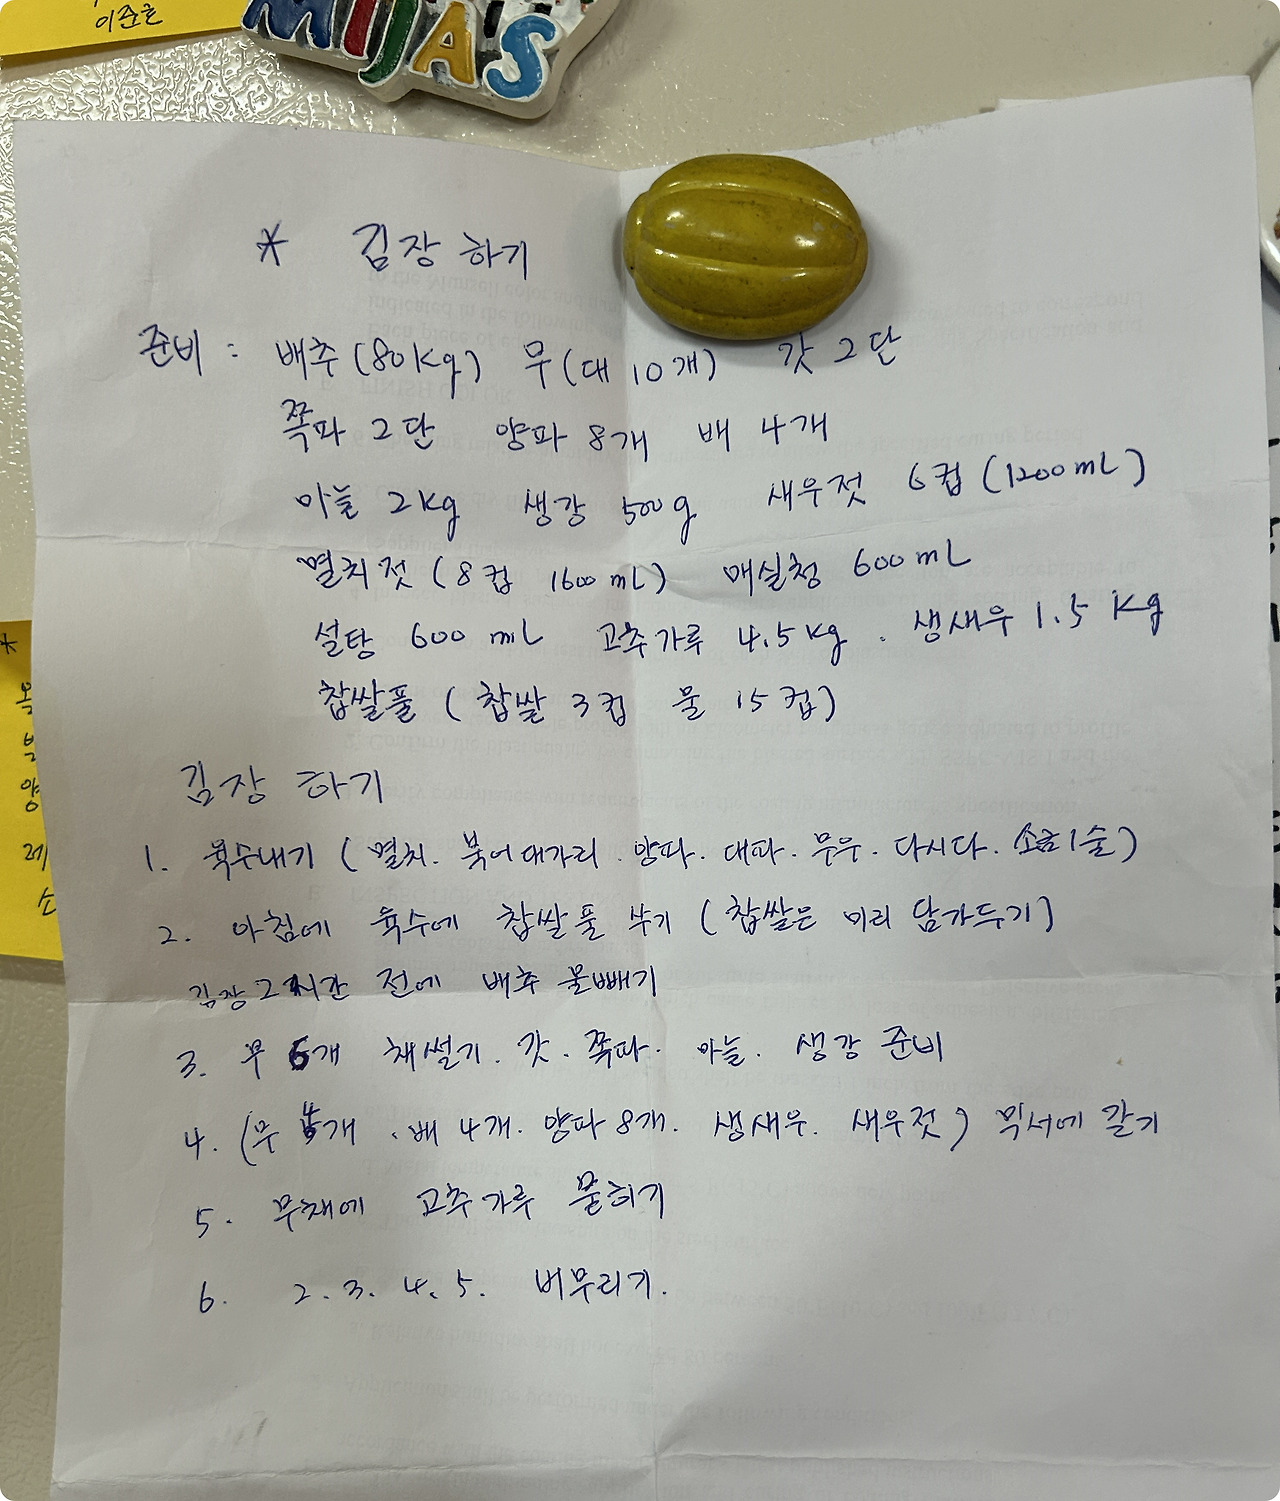 이준호
MIJAS
* 김장 하기
준비 : 배추(80Kg) 무(대 10개) 갓 2단
쪽파 2단 양파 8개 배 4개
마늘 2Kg 생강 500g 새우젓 6컵 (1200mL)
멸치젓 (8컵 1600mL) 매실청 600mL
설탕 600mL 고추가루 4.5kg . 생새우 1.5Kg
찹쌀풀 (찹쌀 3컵 물 15컵)
김장 하기
1. 육수내기 (멸치. 북어대가리. 양파. 대파. 무우. 다시다. 소금1술)
2. 아침에 육수에 찹쌀풀 쑤기 (찹쌀은 미리 담가두기)
김장 2시간 전에 배추 물빼기
3. 무 6개 채썰기. 갓. 쪽파. 마늘. 생강 준비
4. (무 4개 . 배 4개. 양파 8개. 생새우. 새우젓) 믹서에 갈기
5. 무채에 고추가루 물히기
6. 2. 3. 4. 5. 버무리기.
*
양
레
소